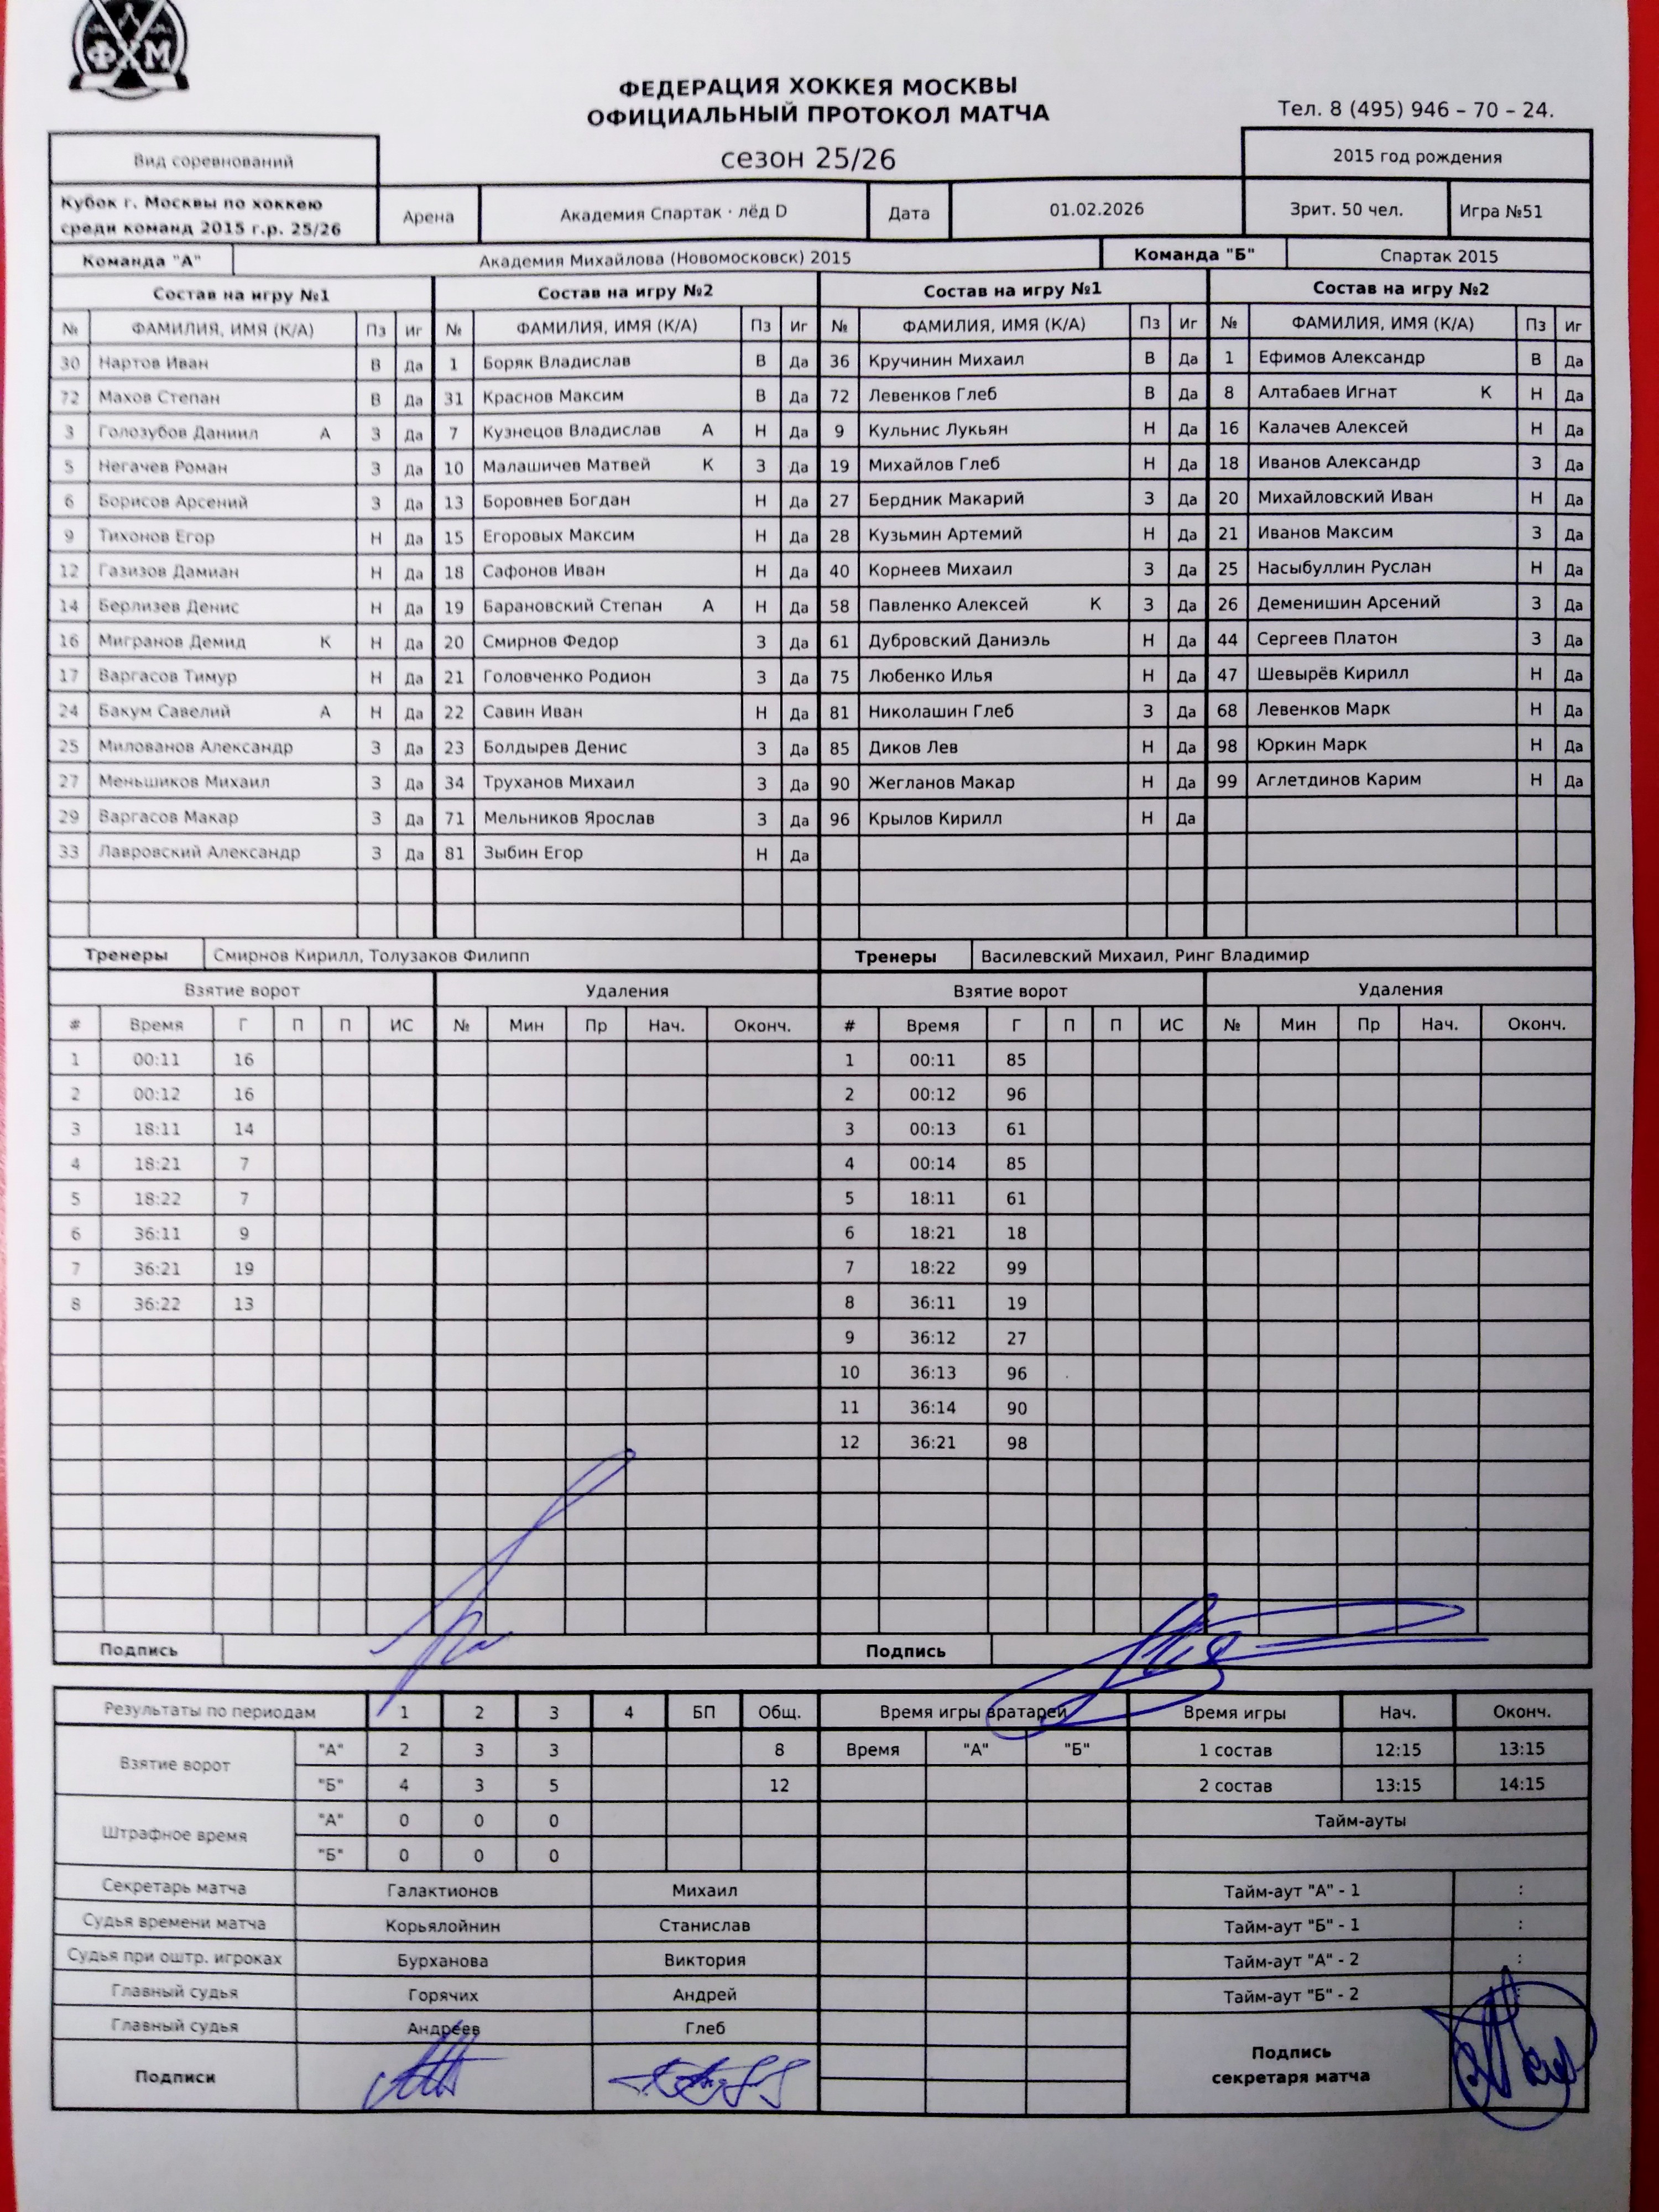 ФХМ
ФЕДЕРАЦИЯ ХОККЕЯ МОСКВЫ
ОФИЦИАЛЬНЫЙ ПРОТОКОЛ МАТЧА
Тел. 8 (495) 946 – 70 – 24.
Вид соревнований сезон 25/26 2015 год рождения
Кубок г. Москвы по хоккею
среди команд 2015 г.р. 25/26
Арена Академия Спартак · лёд D Дата 01.02.2026 Зрит. 50 чел. Игра №51
Команда "А" Академия Михайлова (Новомосковск) 2015 Команда "Б" Спартак 2015
Состав на игру №1 Состав на игру №2 Состав на игру №1 Состав на игру №2
№ ФАМИЛИЯ, ИМЯ (К/А) Пз Иг № ФАМИЛИЯ, ИМЯ (К/А) Пз Иг № ФАМИЛИЯ, ИМЯ (К/А) Пз Иг № ФАМИЛИЯ, ИМЯ (К/А) Пз Иг
30 Нартов Иван В Да 1 Боряк Владислав В Да 36 Кручинин Михаил В Да 1 Ефимов Александр В Да
72 Махов Степан В Да 31 Краснов Максим В Да 72 Левенков Глеб В Да 8 Алтабаев Игнат К Н Да
3 Голозубов Даниил А З Да 7 Кузнецов Владислав А Н Да 9 Кульнис Лукьян Н Да 16 Калачев Алексей Н Да
5 Негачев Роман З Да 10 Малашичев Матвей К З Да 19 Михайлов Глеб Н Да 18 Иванов Александр З Да
6 Борисов Арсений З Да 13 Боровнев Богдан Н Да 27 Бердник Макарий З Да 20 Михайловский Иван Н Да
9 Тихонов Егор Н Да 15 Егоровых Максим Н Да 28 Кузьмин Артемий Н Да 21 Иванов Максим З Да
12 Газизов Дамиан Н Да 18 Сафонов Иван Н Да 40 Корнеев Михаил З Да 25 Насыбуллин Руслан Н Да
14 Берлизев Денис Н Да 19 Барановский Степан А Н Да 58 Павленко Алексей К З Да 26 Деменишин Арсений З Да
16 Мигранов Демид К Н Да 20 Смирнов Федор З Да 61 Дубровский Даниэль Н Да 44 Сергеев Платон З Да
17 Варгасов Тимур Н Да 21 Головченко Родион З Да 75 Любенко Илья Н Да 47 Шевырёв Кирилл Н Да
24 Бакум Савелий А Н Да 22 Савин Иван Н Да 81 Николашин Глеб З Да 68 Левенков Марк Н Да
25 Милованов Александр З Да 23 Болдырев Денис З Да 85 Диков Лев Н Да 98 Юркин Марк Н Да
27 Меньшиков Михаил З Да 34 Труханов Михаил З Да 90 Жегланов Макар Н Да 99 Аглетдинов Карим Н Да
29 Варгасов Макар З Да 71 Мельников Ярослав З Да 96 Крылов Кирилл Н Да
33 Лавровский Александр З Да 81 Зыбин Егор Н Да
Тренеры Смирнов Кирилл, Толузаков Филипп Тренеры Василевский Михаил, Ринг Владимир
Взятие ворот Удаления Взятие ворот Удаления
# Время Г П П ИС № Мин Пр Нач. Оконч. # Время Г П П ИС № Мин Пр Нач. Оконч.
1 00:11 16 1 00:11 85
2 00:12 16 2 00:12 96
3 18:11 14 3 00:13 61
4 18:21 7 4 00:14 85
5 18:22 7 5 18:11 61
6 36:11 9 6 18:21 18
7 36:21 19 7 18:22 99
8 36:22 13 8 36:11 19
9 36:12 27
10 36:13 96
11 36:14 90
12 36:21 98
Подпись Подпись
Результаты по периодам 1 2 3 4 БП Общ. Время игры вратарей Время игры Нач. Оконч.
Взятие ворот "А" 2 3 3 8 Время "А" "Б" 1 состав 12:15 13:15
"Б" 4 3 5 12 2 состав 13:15 14:15
Штрафное время "А" 0 0 0 Тайм-ауты
"Б" 0 0 0
Секретарь матча Галактионов Михаил Тайм-аут "А" - 1 :
Судья времени матча Корьялойнин Станислав Тайм-аут "Б" - 1 :
Судья при оштр. игроках Бурханова Виктория Тайм-аут "А" - 2 :
Главный судья Горячих Андрей Тайм-аут "Б" - 2 :
Главный судья Андреев Глеб
Подписи
Подпись
секретаря матча